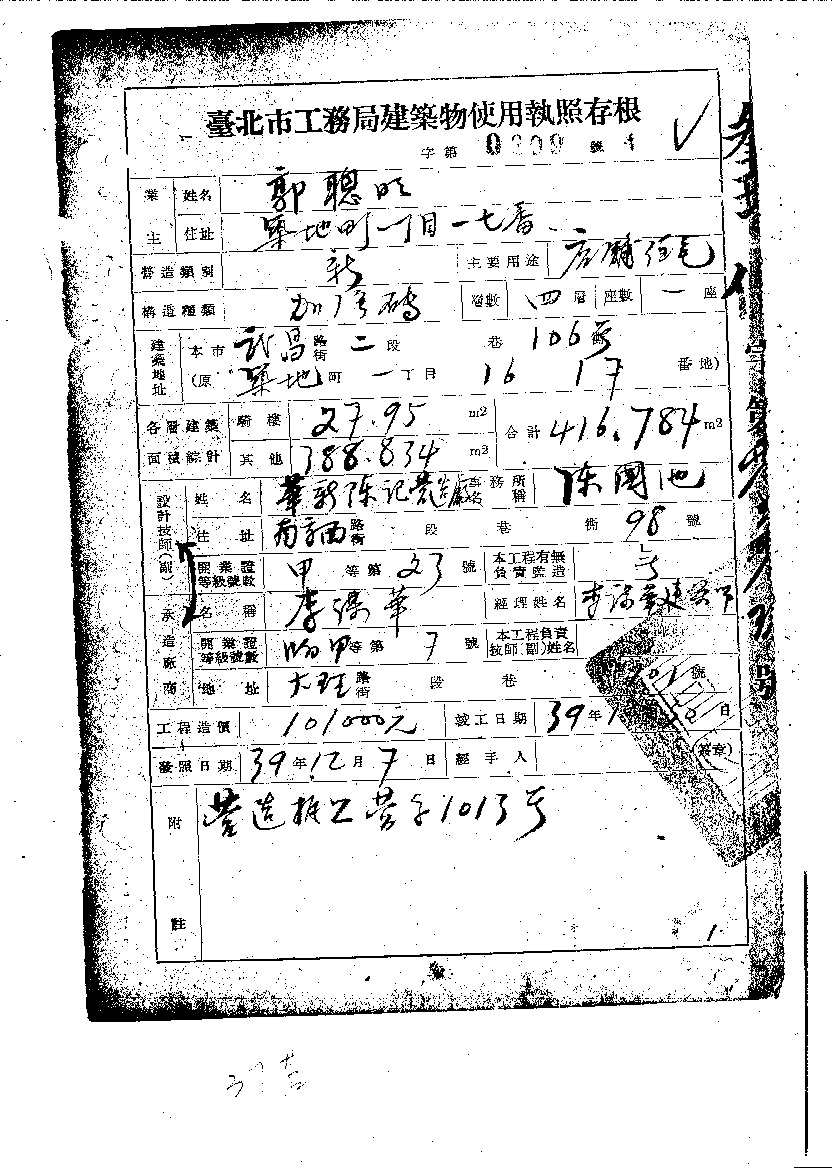 臺北市工務局建築物使用執照存根
字第 0309 號 1
業主 姓名 郭聰明
住址 築地町一丁目一七番
營造類別 新 主要用途 店舖住宅
構造種類 加强磚 層數 四層 座數 一座
建築地址 本市 武昌路街 二段 巷 106號
(原 築地町 一丁目 16 17 番地)
各層建築面積綜計 騎樓 27.95 m2 合計 416.784 m2
其他 388.834 m2
設計技師(副) 姓名 華新陳記營造廠 事務所名稱 陳國池
住址 路街 段 巷 衖 98 號
開業證等級號數 甲等第 23 號 本工程有無負責監造
承造廠商 名稱 華 經理姓名
開業證等級號數 甲等第 7 號 本工程負責技師(副)姓名
地址 路街 段 巷 號
工程造價 101000元 竣工日期 39年 日
發照日期 39年12月7日 經手人 (簽章)
附註 營造 1013号